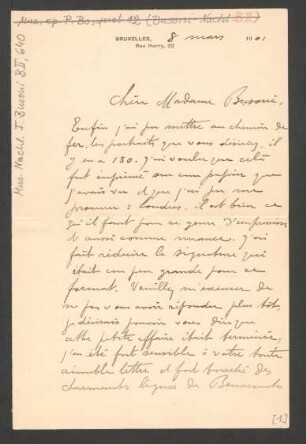 Mus. ep. P. Bosquet 12 (Busoni-Nachl. B II)
Mus. Nachl. F. Busoni B II, 640
BRUXELLES, 8 mars 1901
Rue Henry, 22
Chère Madame Busoni,
Enfin j'ai pu mettre au chemin de
fer, les portraits que vous désirez, il
y en a 150. J'ai voulu que cela
fut imprimé sur un papier que
j'avais vu et que j'ai pu me
procurer à Londres. il est bien ce
qu'il faut pour ce genre d'impression
et aussi comme nuance. J'ai
fait réduire la signature qui
était un peu grande pour ce
format. Veuillez m'excuser de
ne pas vous avoir répondu plus tôt,
je désirais pouvoir vous dire que
cette petite affaire était terminée,
j'ai été fort sensible à votre toute
aimable lettre et fort touché des
charmantes lignes de Benvenuto
[1]